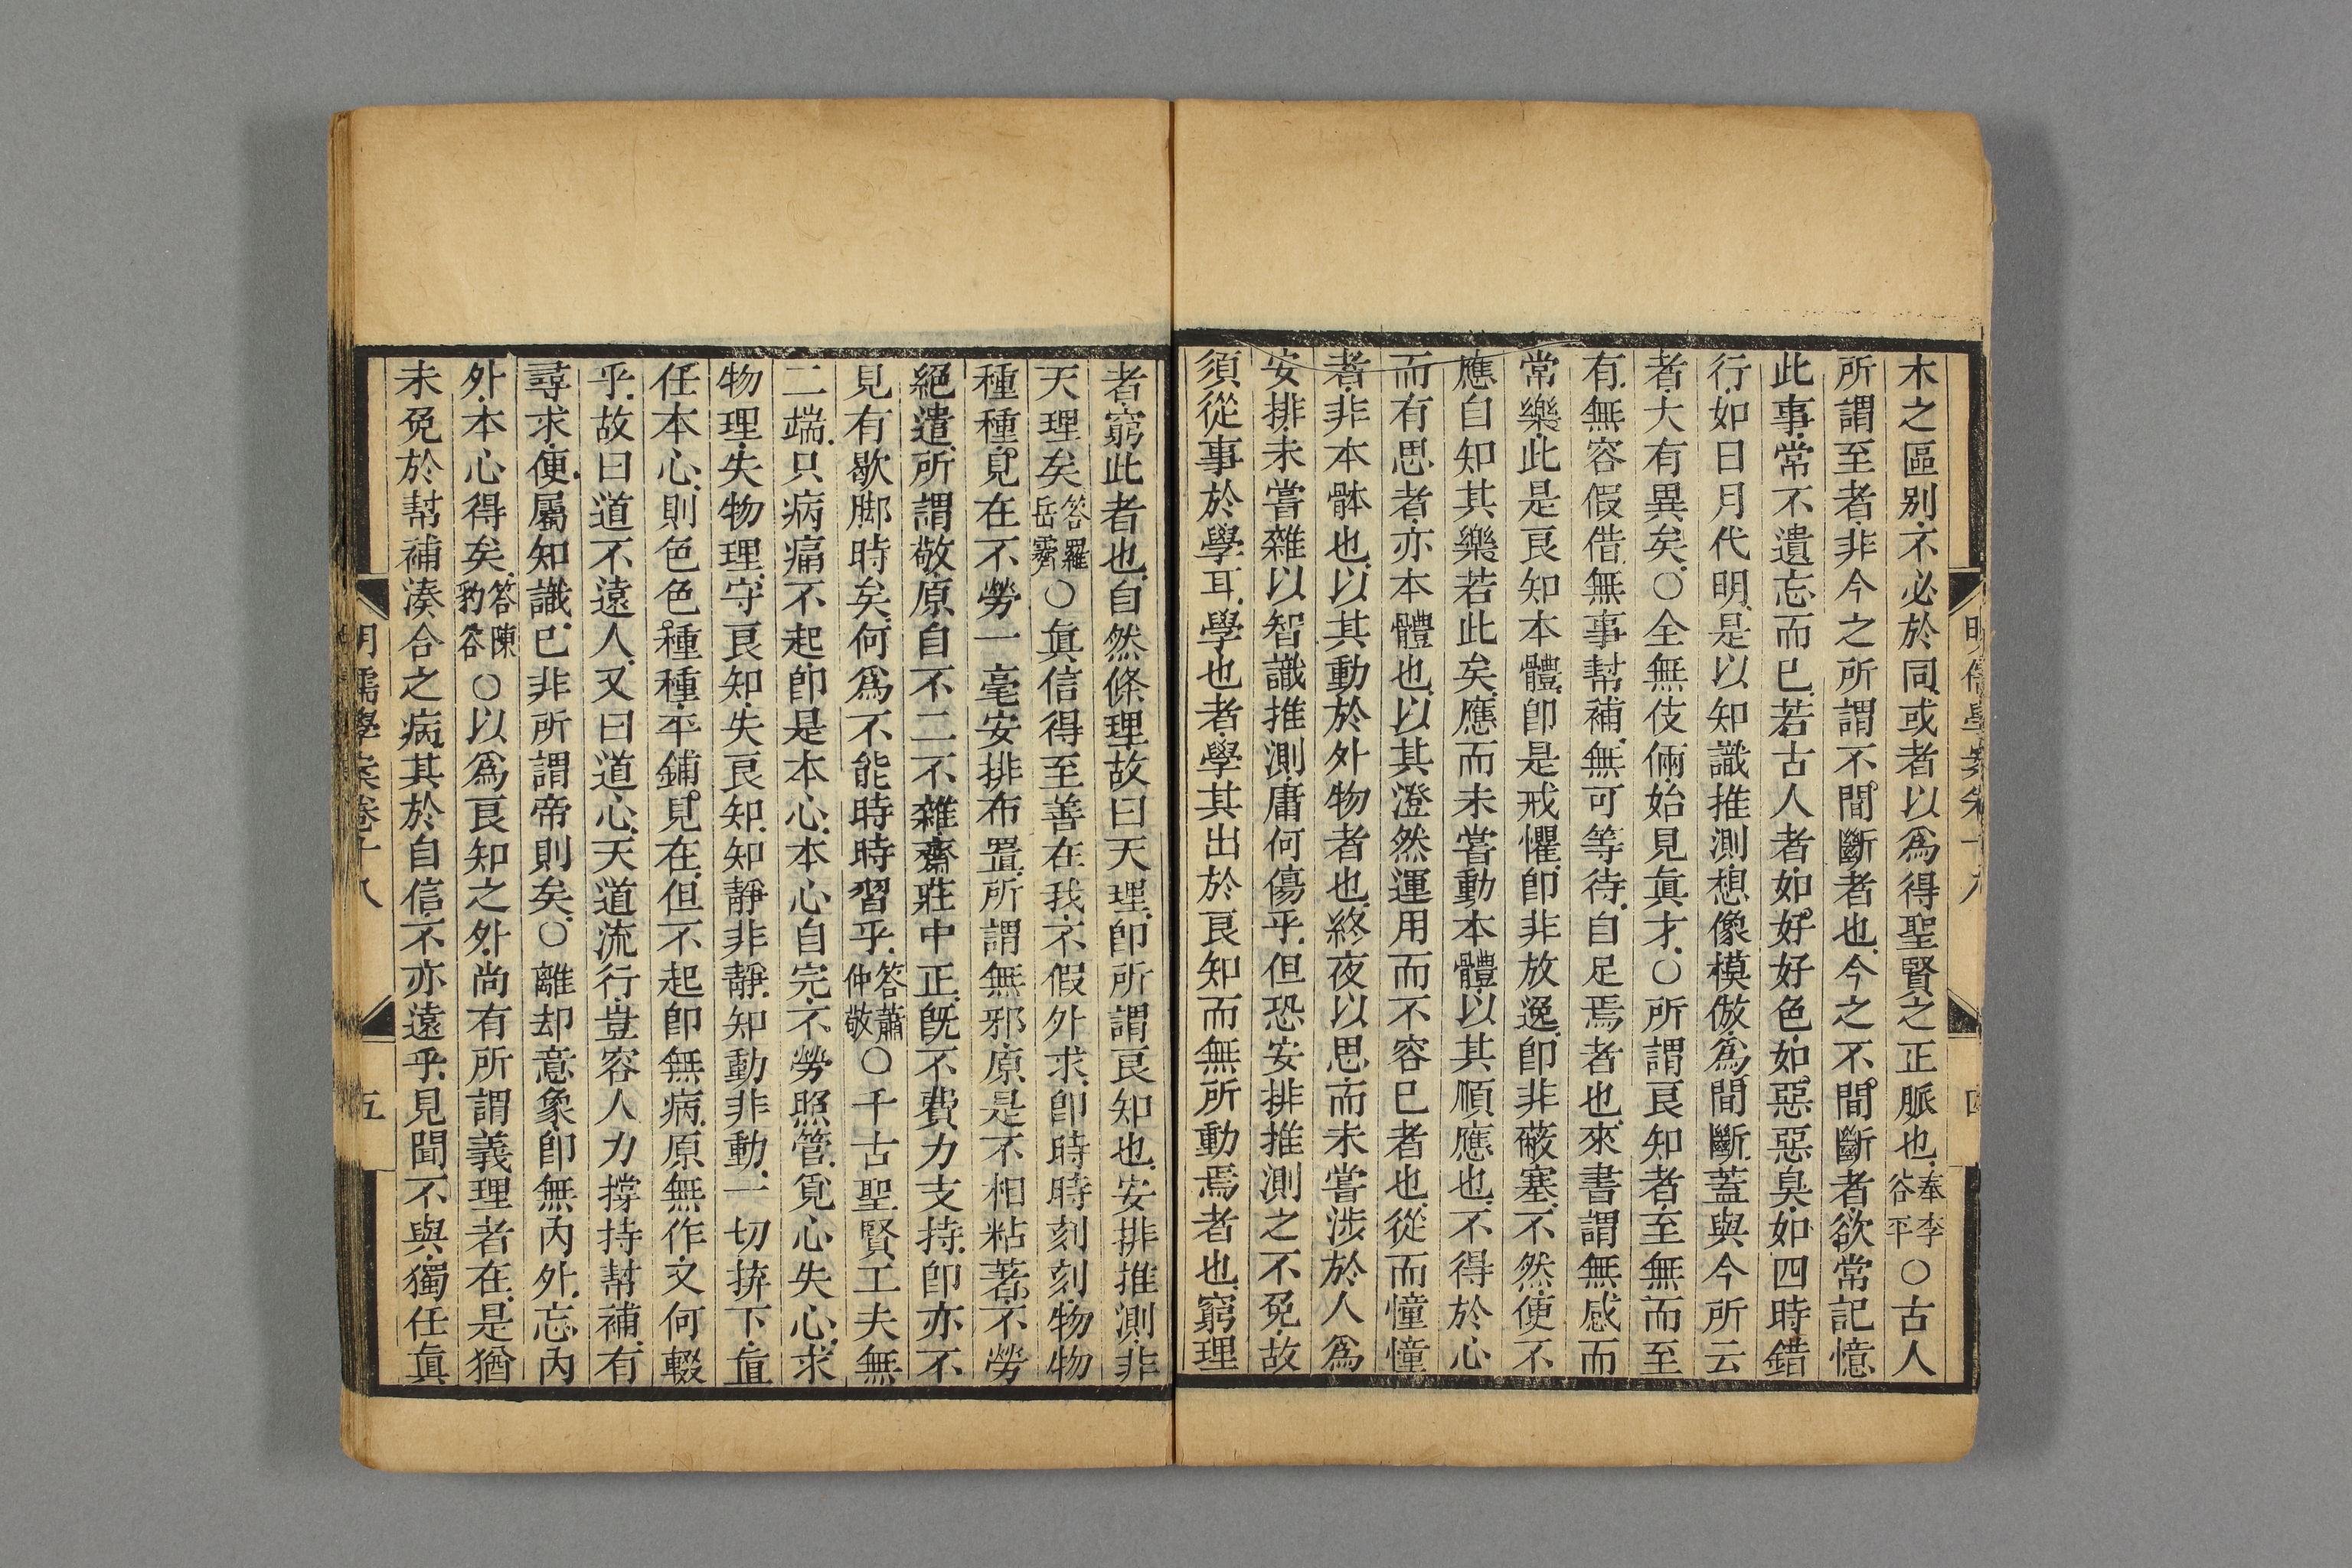 木之區别不必於同或者以爲得聖賢之正脈也奉李谷平○古人
所謂至者非今之所謂不間斷者也今之不間斷者欲常記憶
此事常不遺忘而已若古人者如好好色如惡惡臭如四時錯
行如日月代明是以知識推測想像模倣爲間斷蓋與今所云
者大有異矣○全無伎倆始見眞才○所謂良知者至無而至
有無容假借無事幇補無可等待自足焉者也來書謂無感而
常樂此是良知本體卽是戒懼卽非放逸卽非蔽塞不然便不
應自知其樂若此矣應而未嘗動本體以其順應也不得於心
而有思者亦本體也以其澄然運用而不容已者也從而憧憧
者非本体也以其動於外物者也終夜以思而未嘗涉於人爲
安排未嘗雜以智識推測庸何傷乎但恐安排推測之不免故
須從事於學耳學也者學其出於良知而無所動焉者也窮理
者窮此者也自然條理故曰天理卽所謂良知也安排推測非
天理矣答羅岳霽○眞信得至善在我不假外求卽時時刻刻物物
種種見在不勞一毫安排布置所謂無邪原是不相粘著不勞
絕遣所謂敬原自不二不雜齋莊中正旣不費力支持卽亦不
見有歇脚時矣何爲不能時時習乎答蕭仲敬○千古聖賢工夫無
二端只病痛不起卽是本心本心自完不勞照管覓心失心求
物理失物理守良知失良知知靜非靜知動非動一切拚下直
任本心則色色種種平鋪見在但不起卽無病原無作又何輟
乎故曰道不遠人又曰道心天道流行豈容人力撐持幇補有
尋求便屬知識已非所謂帝則矣○離却意象卽無內外忘內
外本心得矣答陳豹谷○以爲良知之外尚有所謂義理者在是猶
未免於幇補湊合之病其於自信不亦遠乎見聞不與獨任眞
明儒學案卷十八
五